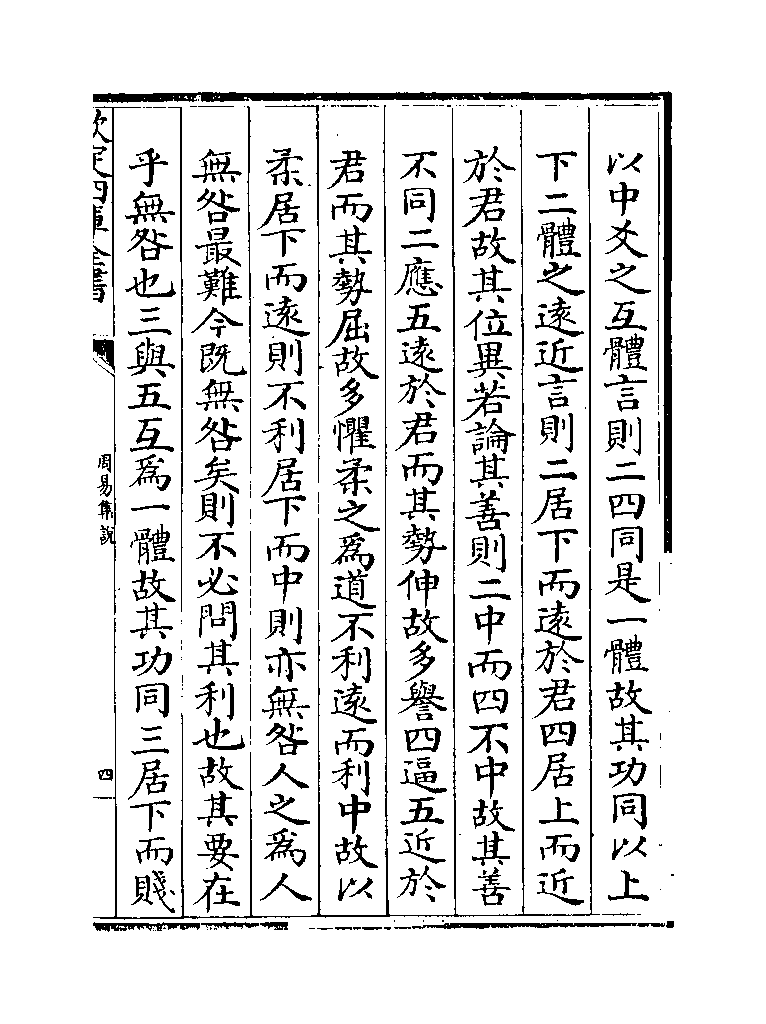 以中爻之互體言則二四同是一體故其功同以上
下二體之遠近言則二居下而遠於君四居上而近
於君故其位異若論其善則二中而四不中故其善
不同二應五遠於君而其勢伸故多譽四逼五近於
君而其勢屈故多懼柔之為道不利遠而利中故以
柔居下而遠則不利居下而中則亦無咎人之為人
無咎最難今既無咎矣則不必問其利也故其要在
乎無咎也三與五互為一體故其功同三居下而賤
欽定四庫全書
周易集說
四